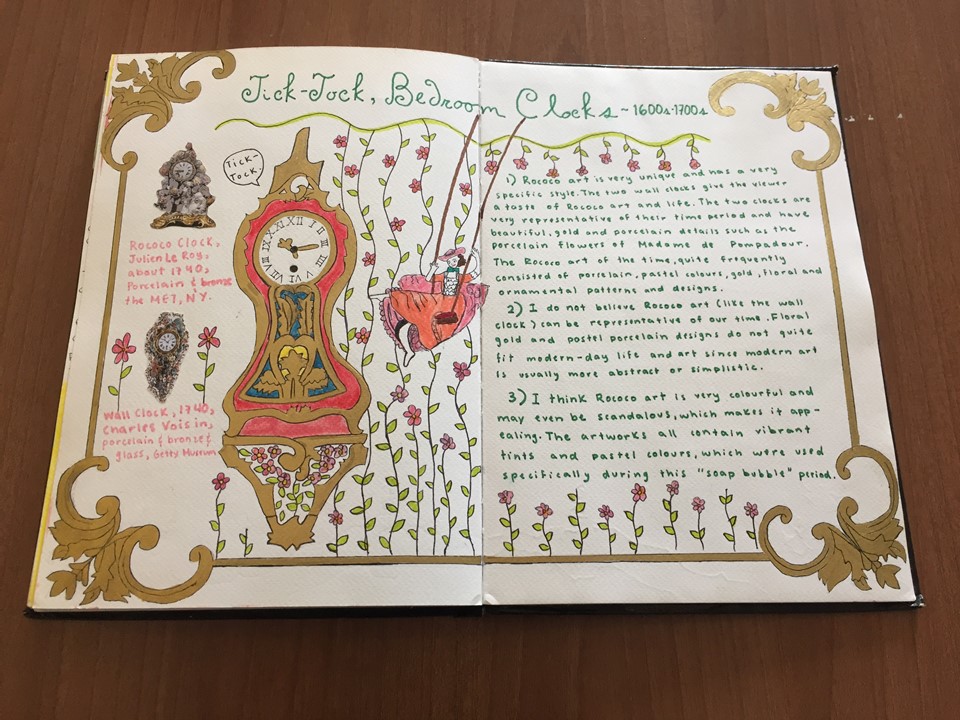 Tick-Tock, Bedroom Clocks ~ 1600s-1700s
Tick-
Tock.
Rococo Clock,
Julien Le Roy,
about 1740,
Porcelain & bronze
the MET, NY.
Wall Clock, 1740,
Charles Voisin,
porcelain & bronze &
glass, Getty Museum
XII
I
II
III
IIII
V
VI
VII
VIII
IX
X
XI
1) Rococo art is very unique and has a very
specific style. The two wall clocks give the viewer
a taste of Rococo art and life. The two clocks are
very representative of their time period and have
beautiful, gold and porcelain details such as the
porcelain flowers of Madame de Pompadour.
The Rococo art of the time, quite frequently
consisted of porcelain, pastel colours, gold, floral and
ornamental patterns and designs.
2) I do not believe Rococo art (like the wall
clock) can be representative of our time. Floral
gold and postel porcelain designs do not quite
fit modern-day life and art since modern art
is usually more abstract or simplistic.
3) I think Rococo art is very colourful and
may even be scandalous, which makes it app-
ealing. The artworks all contain vibrant
tints and pastel colours, which were used
specifically during this "soap bubble" period.